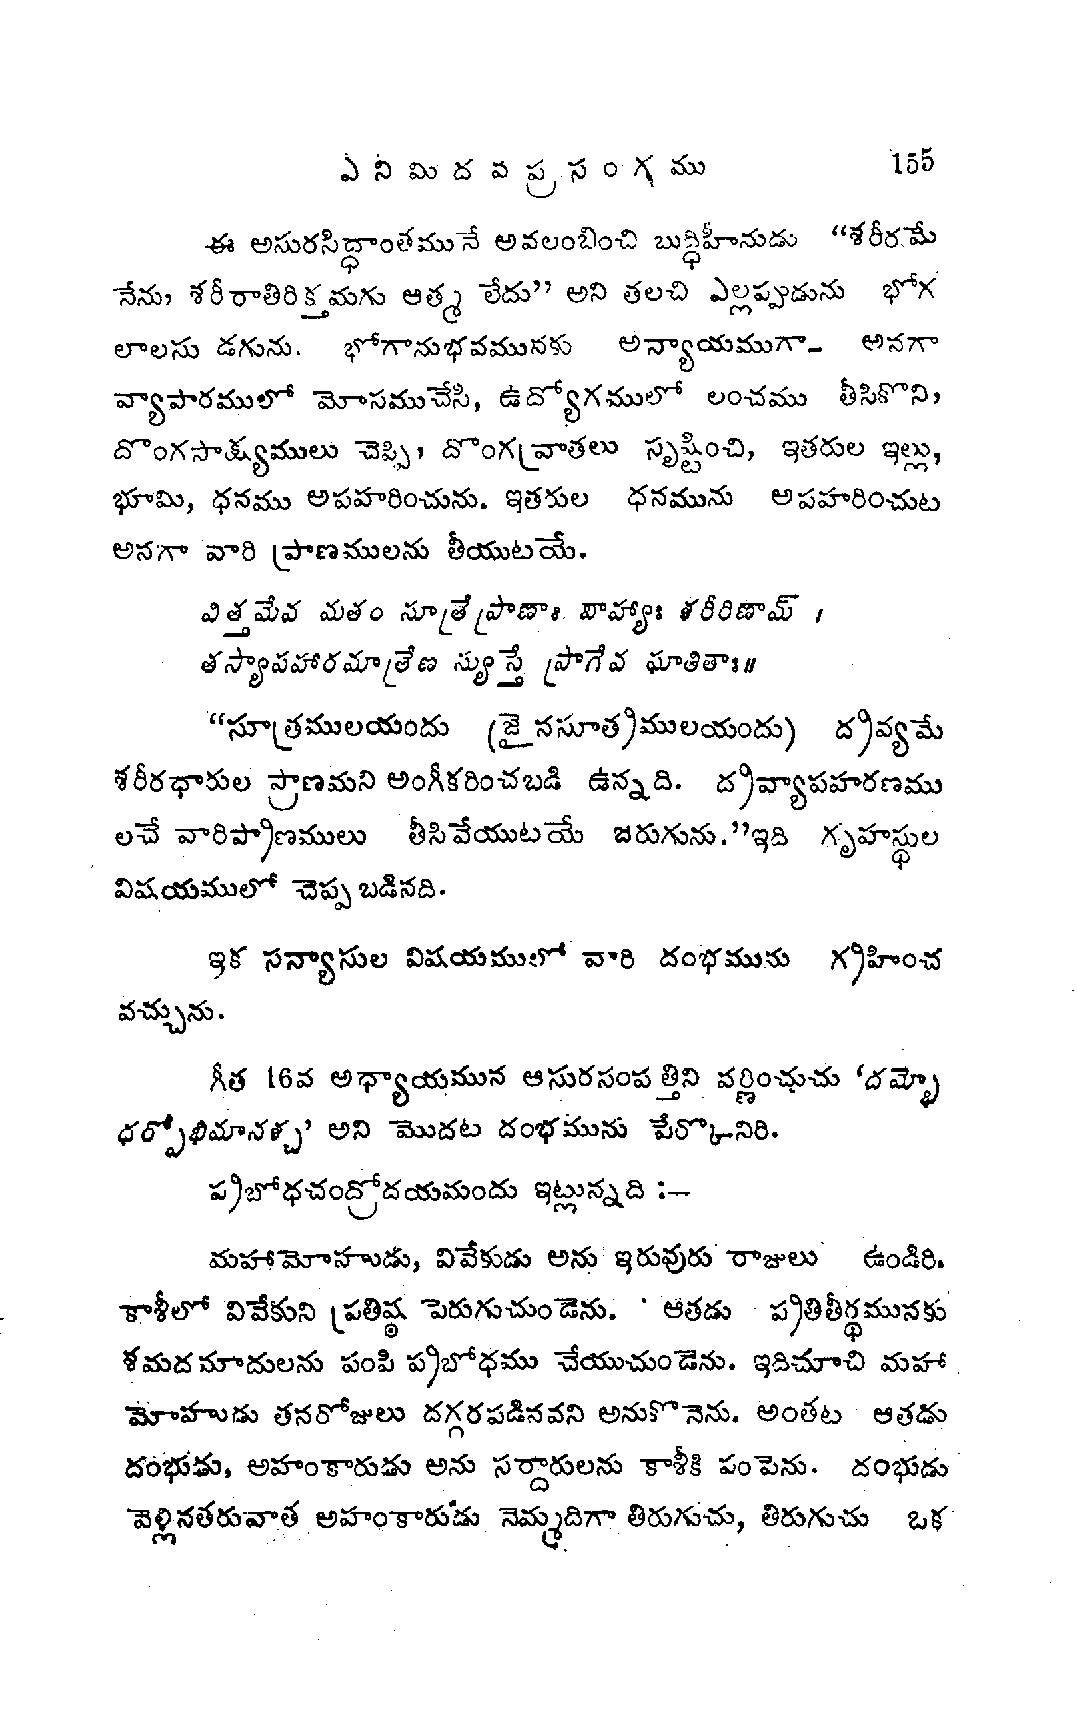 ఎనిమిదవప్రసంగము 155
ఈ అసురసిద్ధాంతమునే అవలంబించి బుద్ధిహీనుడు “శరీరమే
నేను, శరీరాతిరిక్తమగు ఆత్మ లేదు” అని తలచి ఎల్లప్పుడును భోగ
లాలసు డగును. భోగానుభవమునకు అన్యాయముగా- అనగా
వ్యాపారములో మోసముచేసి, ఉద్యోగములో లంచము తీసికొని,
దొంగసాక్ష్యములు చెప్పి, దొంగవ్రాతలు సృష్టించి, ఇతరుల ఇల్లు,
భూమి, ధనము అపహరించును. ఇతరుల ధనమును అపహరించుట
అనగా వారి ప్రాణములను తీయుటయే.
విత్తమేవ మతం సూత్రేప్రాణాః బాహ్యాః శరీరిణామ్ ।
తస్యాపహారమాత్రేణ స్యుస్తే ప్రాగేవ ఘాతితాః॥
“సూత్రములయందు (జైనసూత్రములయందు) ద్రవ్యమే
శరీరధారుల ప్రాణమని అంగీకరించబడి ఉన్నది. ద్రవ్యాపహరణము
లచే వారిప్రాణములు తీసివేయుటయే జరుగును.”ఇది గృహస్థుల
విషయములో చెప్పబడినది.
ఇక సన్యాసుల విషయములో వారి దంభమును గ్రహించ
వచ్చును.
గీత 16వ అధ్యాయమున ఆసురసంపత్తిని వర్ణించుచు ‘దమ్భో
ధర్పోభిమానశ్చ’ అని మొదట దంభమును పేర్కొనిరి.
ప్రబోధచంద్రోదయమందు ఇట్లున్నది :—
మహామోహుడు, వివేకుడు అను ఇరువురు రాజులు ఉండిరి.
కాశీలో వివేకుని ప్రతిష్ఠ పెరుగుచుండెను. ఆతడు ప్రతితీర్థమునకు
శమదమాదులను పంపి ప్రబోధము చేయుచుండెను. ఇదిచూచి మహా
మోహుడు తనరోజులు దగ్గరపడినవని అనుకొనెను. అంతట ఆతడు
దంభుడు, అహంకారుడు అను సర్దారులను కాశీకి పంపెను. దంభుడు
వెళ్లినతరువాత అహంకారుడు నెమ్మదిగా తిరుగుచు, తిరుగుచు ఒక